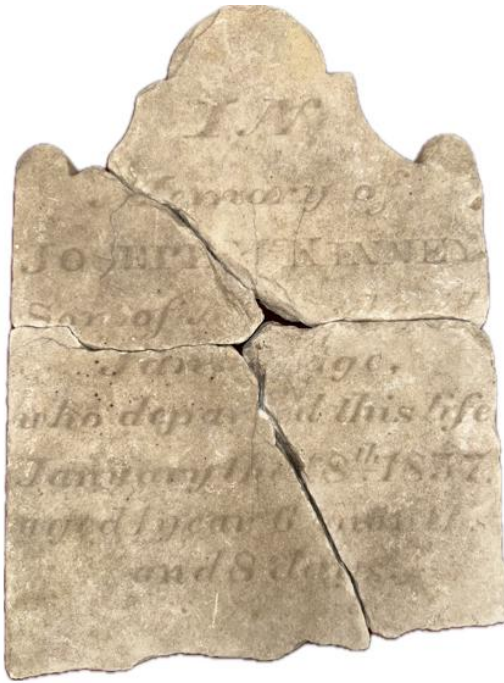 IN
Memory of
JOSEPH McKENNEY
Son of
who departed this life
January the 8th 1837.
aged 1 year 6 months
and 8 days.